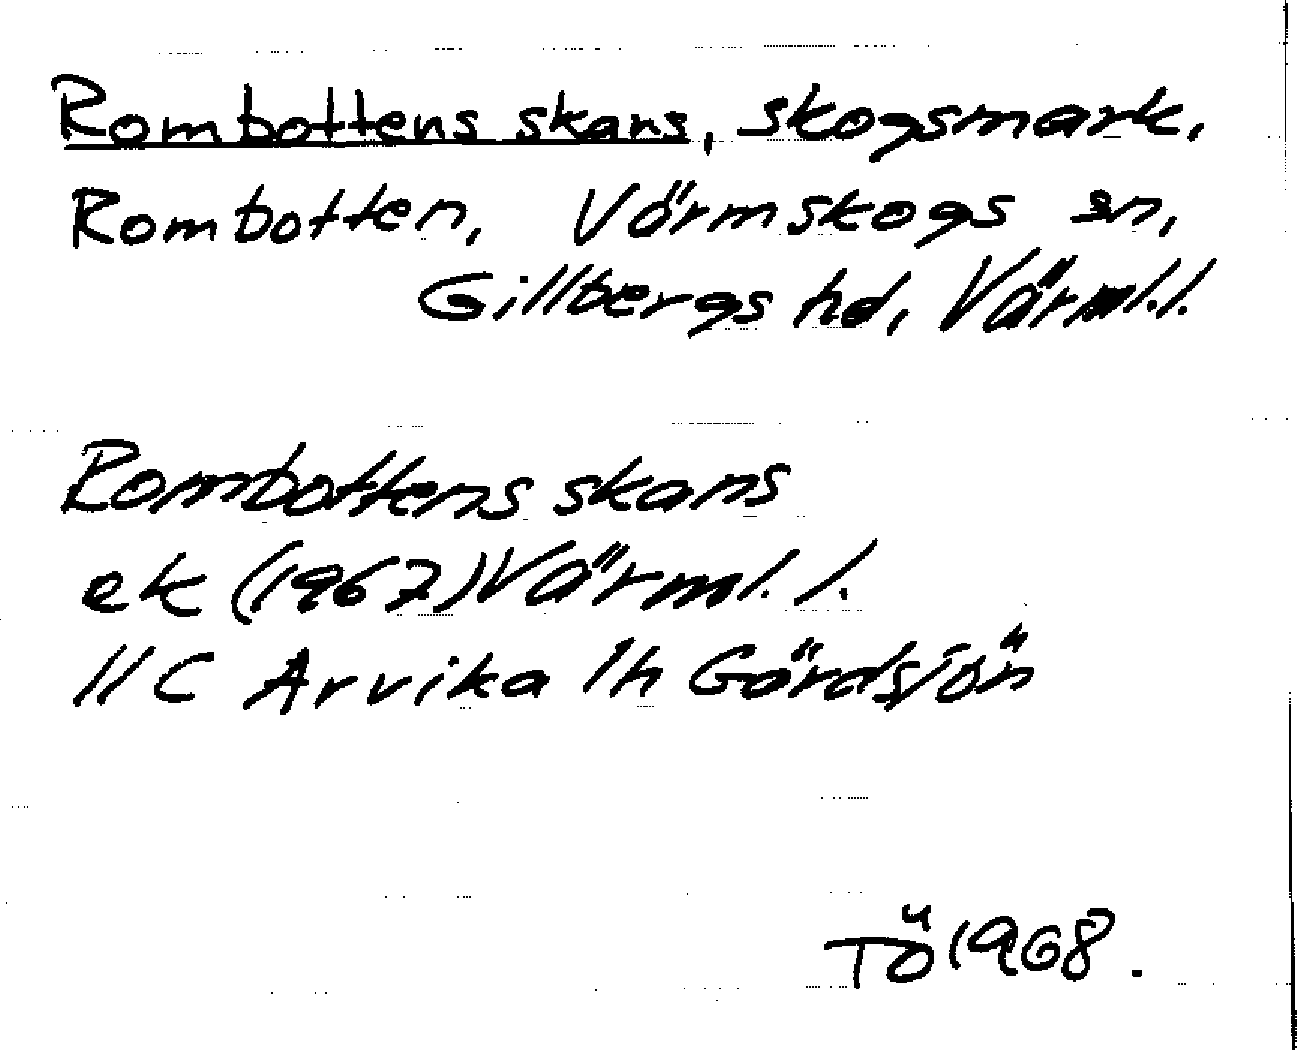 Rombottens skans, skogsmark,
Rombotten, Värmskogs sn,
Gillbergs hd, Värml.l.
Rombottens skans
ek (1967) Värml. l.
11C Arvika 1h Gärdsjön
TÖ 1968.